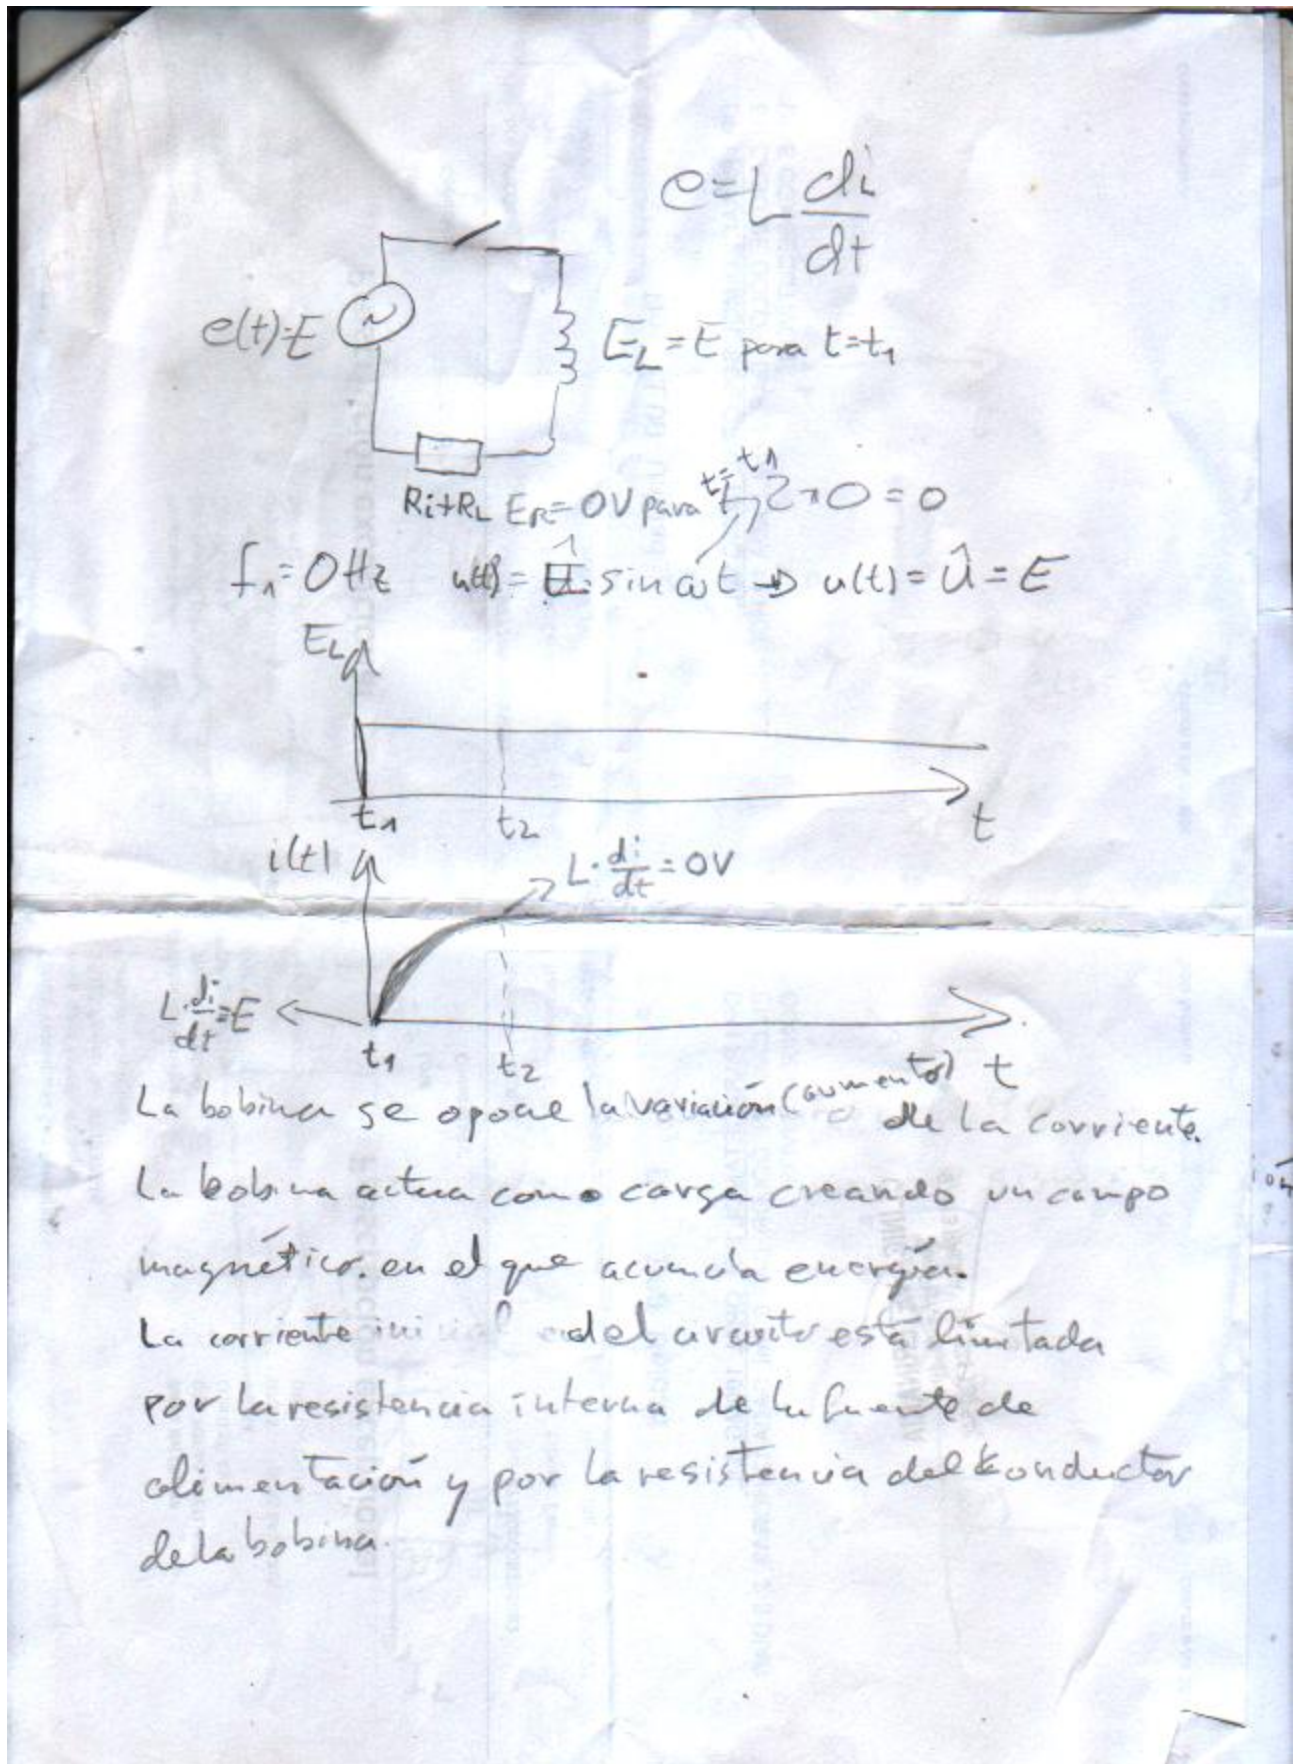 e=L di/dt
e(t)=E
E_L = E para t=t₁
t₁
Ri+R_L E_R=0V para t= 2π0=0
f₁=0Hz u(t)= Û·sin ωt ⇒ u(t)=Û=E
E_L
t₁ t₂ t
i(t)
L·di/dt=0V
L·di/dt=E
t₁ t₂ t
La bobina se opone la variación (aumento) de la corriente.
La bobina actua como carga creando un campo
magnético. en el que acumula energía.
La corriente inicial del circuito está limitada
por la resistencia interna de la fuente de
alimentación y por la resistencia del konductor
de la bobina.